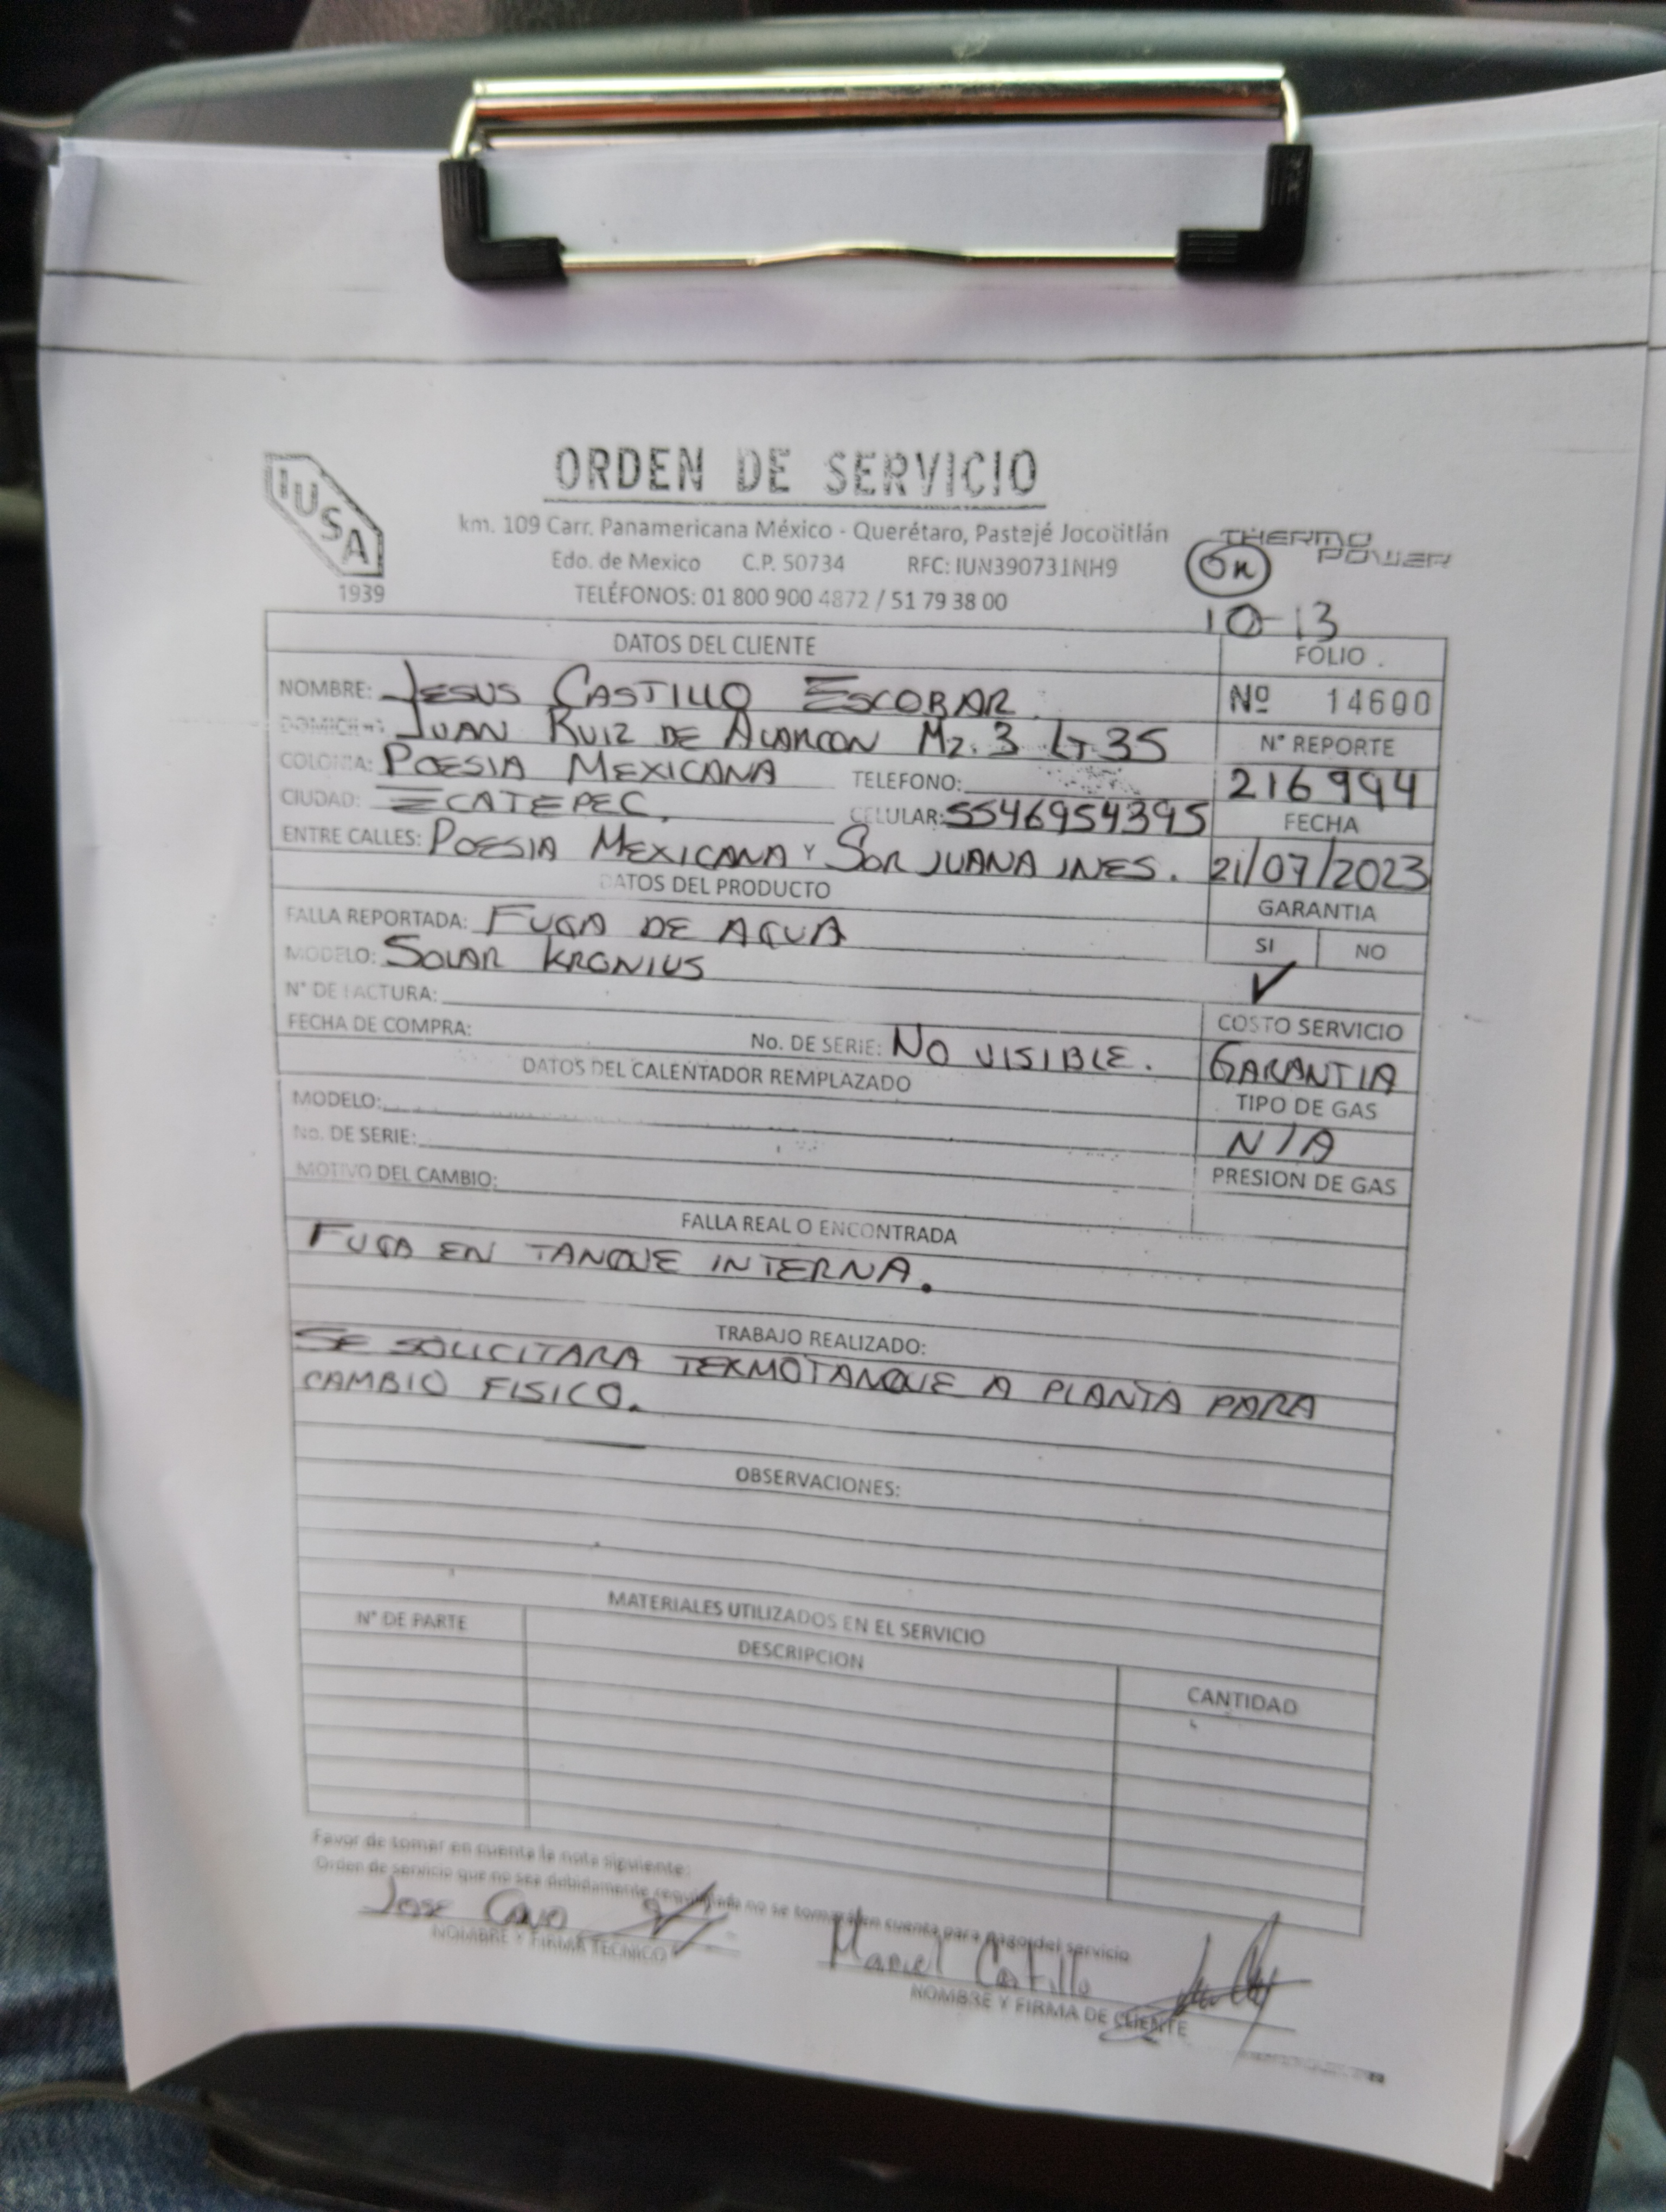 IUSA
1939
ORDEN DE SERVICIO
km. 109 Carr. Panamericana México - Querétaro, Pastejé Jocotitlán
Edo. de Mexico C.P. 50734 RFC: IUN390731NH9
TELÉFONOS: 01 800 900 4872 / 51 79 38 00
THERMO POWER
10-13
DATOS DEL CLIENTE
FOLIO
NOMBRE: JESUS CASTILLO ESCOBAR
Nº 14600
DOMICILIO: JUAN RUIZ DE ALARCON MZ. 3 LT 35
Nº REPORTE
COLONIA: POESIA MEXICANA TELEFONO:
216994
CIUDAD: ECATEPEC. CELULAR: 5546954395
FECHA
ENTRE CALLES: POESIA MEXICANA Y SOR JUANA INES.
21/07/2023
DATOS DEL PRODUCTO
GARANTIA
FALLA REPORTADA: FUGA DE AGUA
SI NO
MODELO: SOLAR KRONIUS
✓
N° DE FACTURA:
COSTO SERVICIO
FECHA DE COMPRA: No. DE SERIE: NO VISIBLE.
GARANTIA
DATOS DEL CALENTADOR REMPLAZADO
TIPO DE GAS
MODELO:
N/A
No. DE SERIE:
PRESION DE GAS
MOTIVO DEL CAMBIO:
FALLA REAL O ENCONTRADA
FUGA EN TANQUE INTERNA.
TRABAJO REALIZADO:
SE SOLICITARA TERMOTANQUE A PLANTA PARA
CAMBIO FISICO.
OBSERVACIONES:
MATERIALES UTILIZADOS EN EL SERVICIO
N° DE PARTE DESCRIPCION CANTIDAD
Favor de tomar en cuenta la nota siguiente:
Orden de servicio que no sea debidamente requisitada no se tomará en cuenta para pago del servicio
JOSE
NOMBRE Y FIRMA TECNICO
Manuel Castillo
NOMBRE Y FIRMA DE CLIENTE